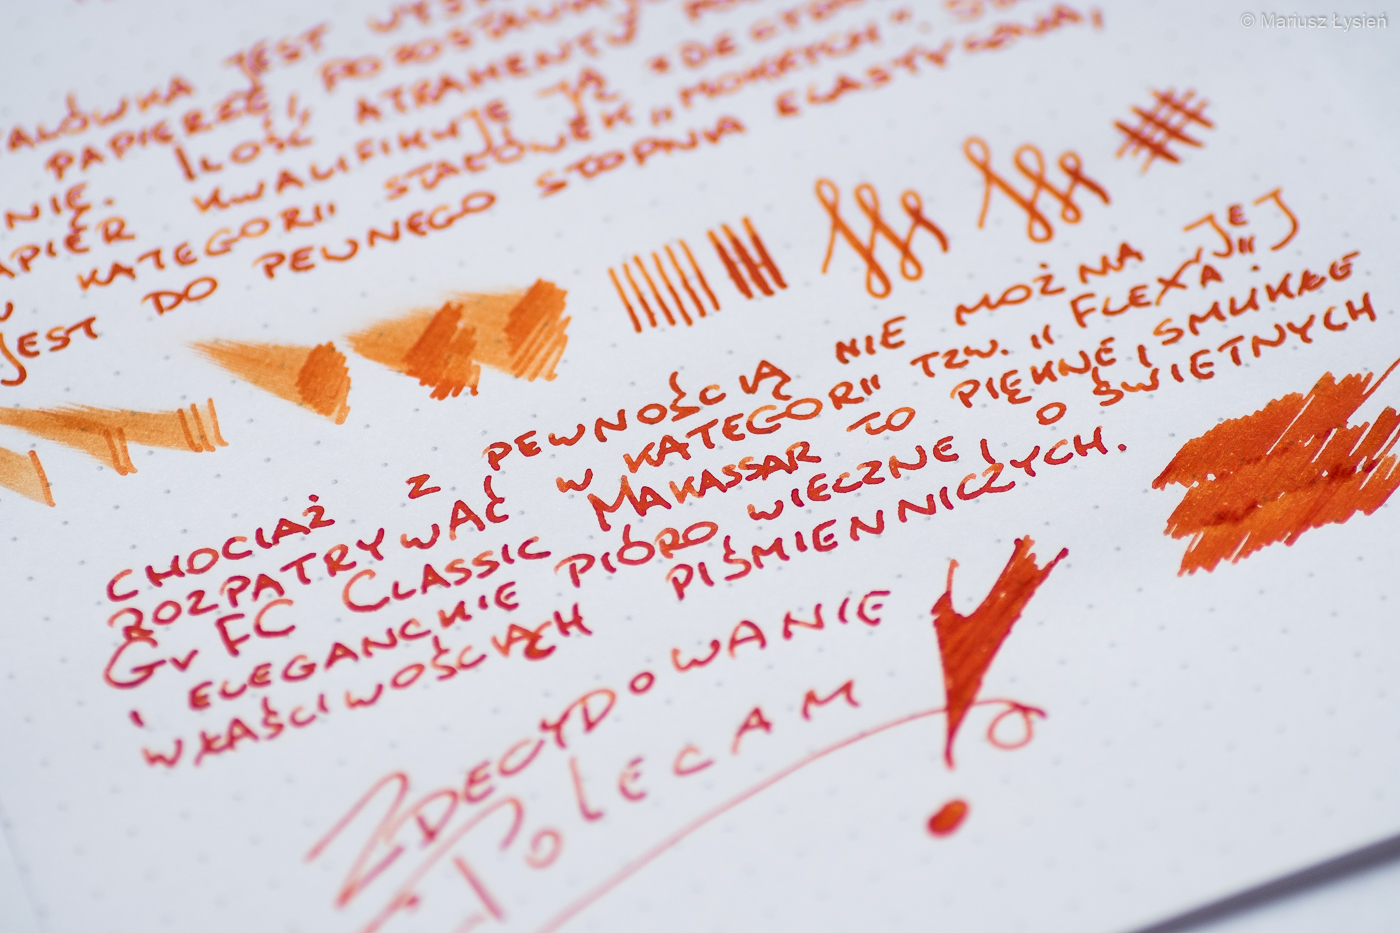 © Mariusz Łysień
JEST
STALÓWKA JEST
PAPIERZE, POZOSTAWIAJ
NIE. ILOŚĆ ATRAMENTU
PAPIER KWALIFIKUJE JĄ
KATEGORII STALÓWEK „MOKRYCH".
JEST DO PEWNEGO STOPNIA ELASTYCZNA,
CHOCIAŻ Z PEWNOŚCIĄ NIE MOŻNA JEJ
ROZPATRYWAĆ W KATEGORII TZW. „FLEXA".
GV FC CLASSIC MAKASSAR TO PIĘKNE, SMUKŁE
I ELEGANCKIE PIÓRO WIECZNE, O ŚWIETNYCH
WŁAŚCIWOŚCIACH PIŚMIENNICZYCH.
ZDECYDOWANIE
POLECAM!